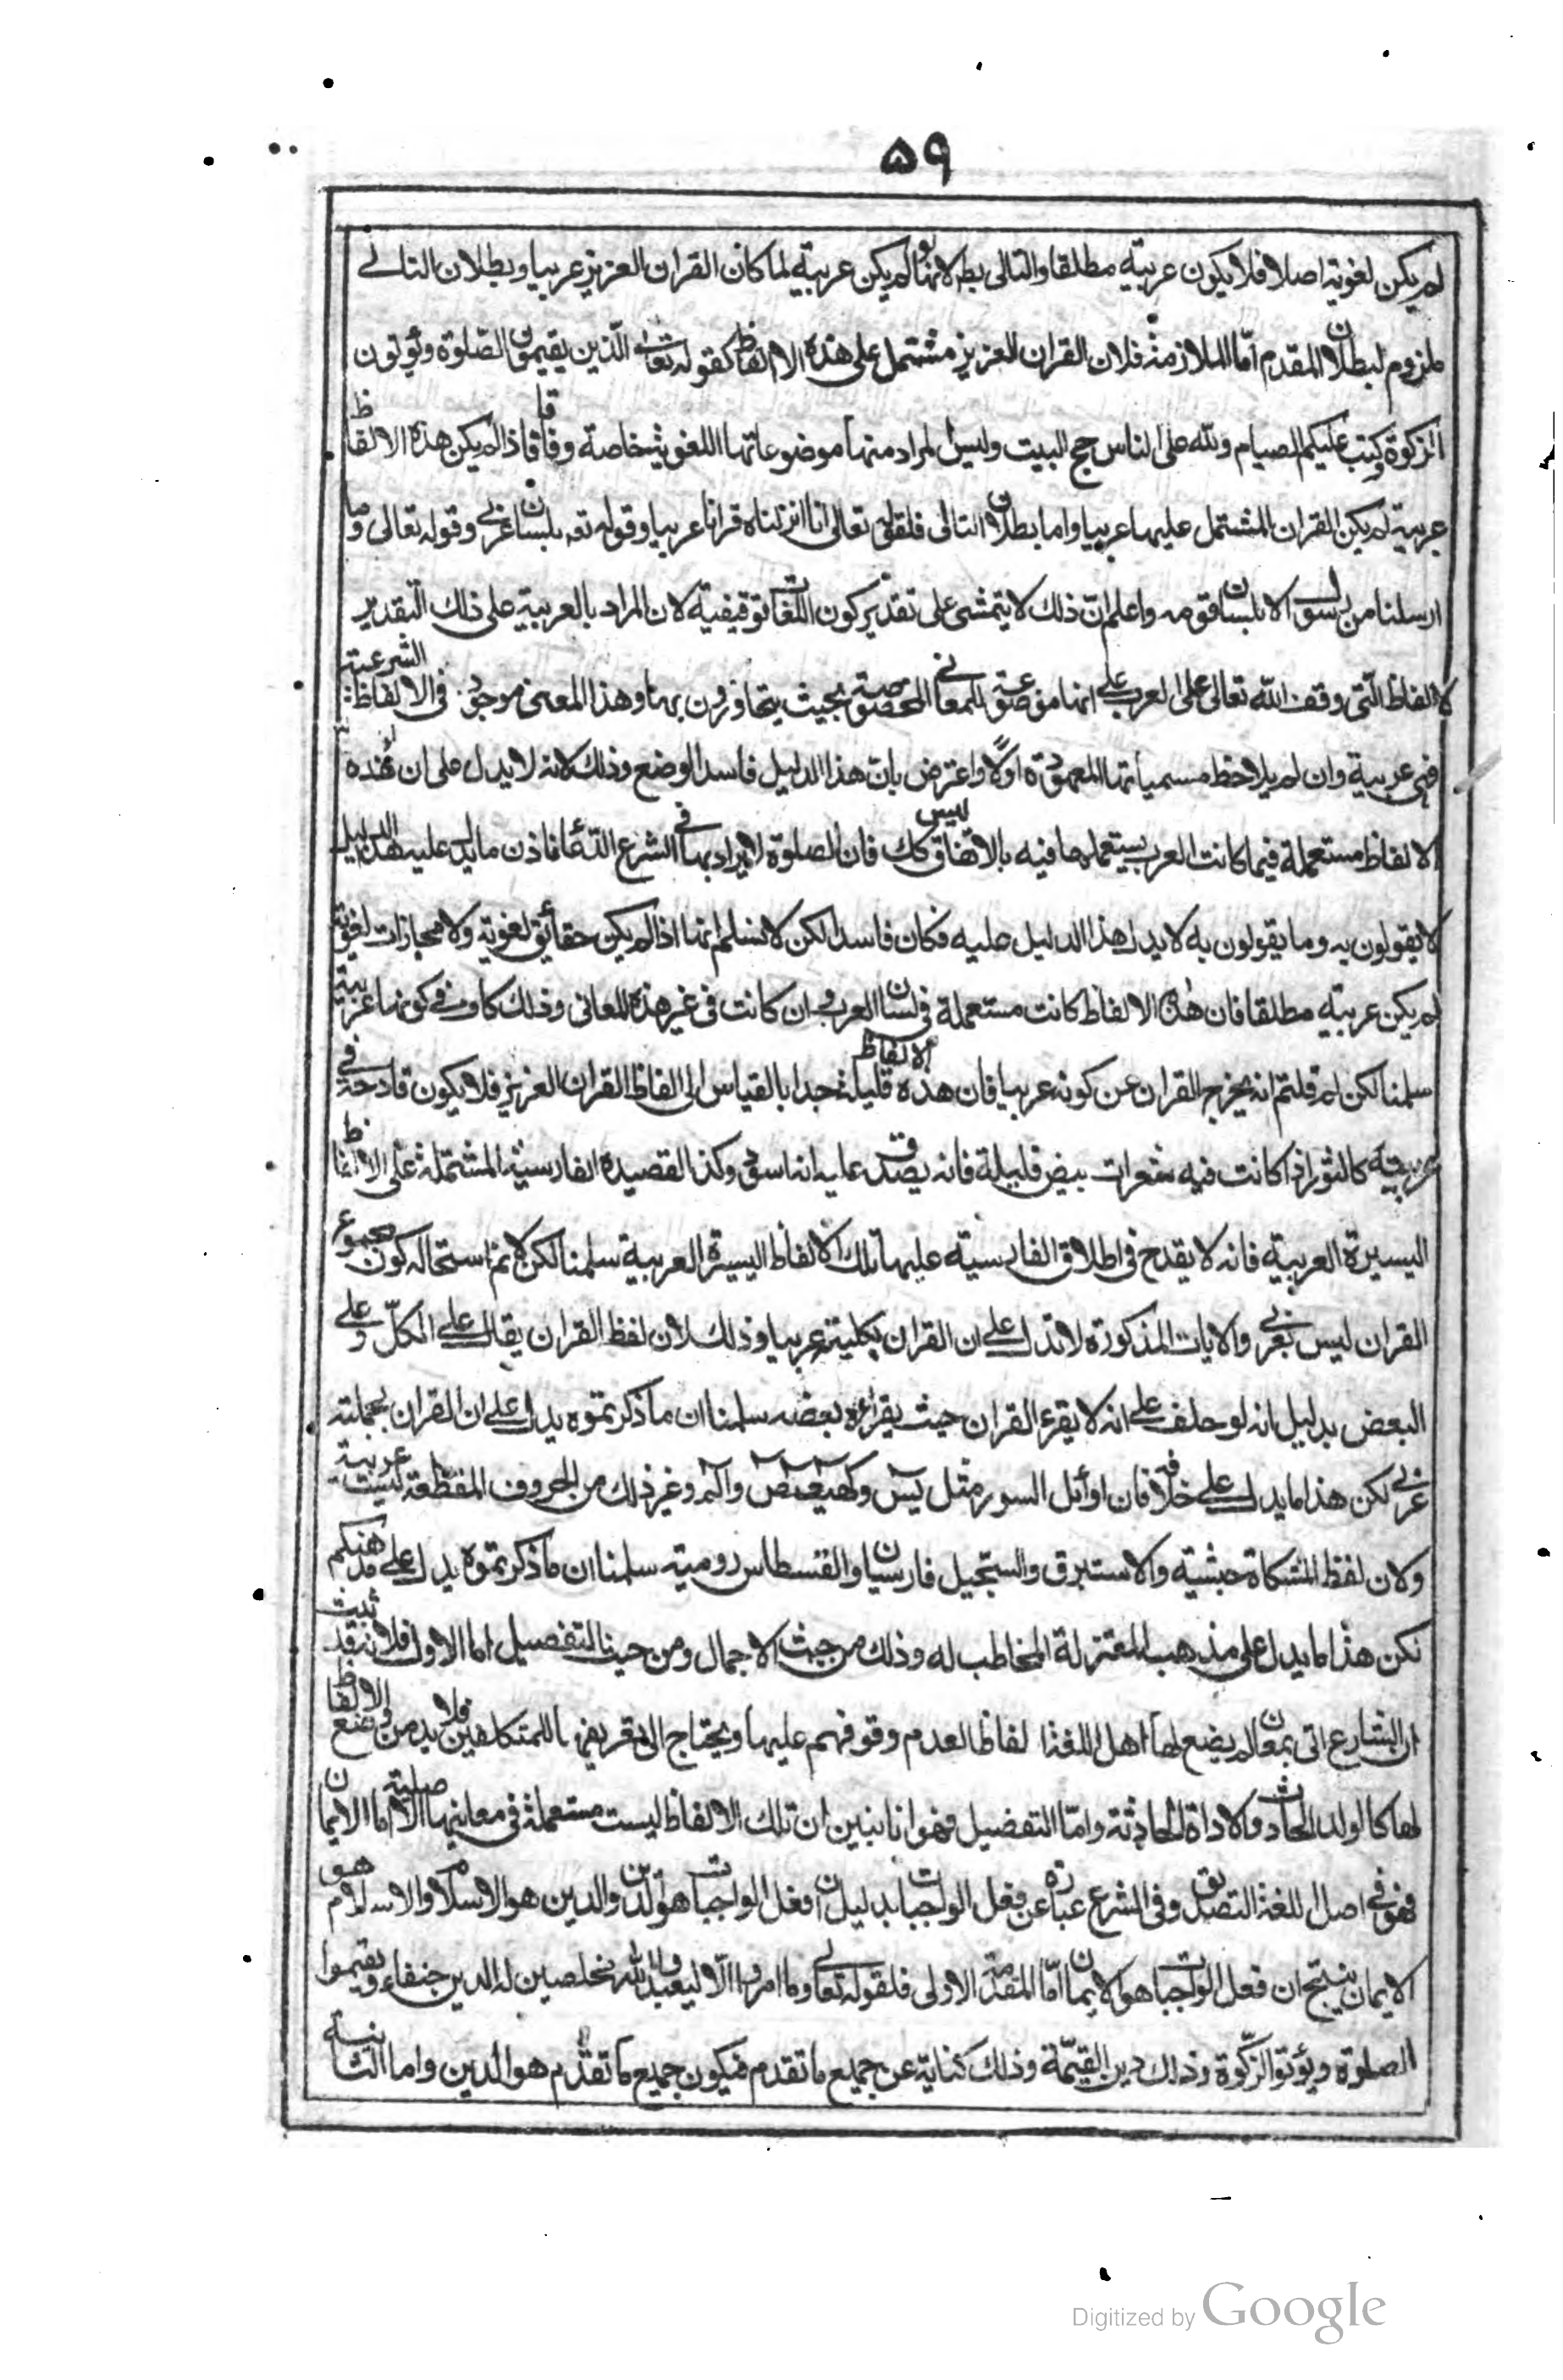 ۵۹
لم يكن لغوية اصلا فلا يكون عربية مطلقا والتالى بط لانها لو لم يكن عربية لما كان القران العزيز عربيا وبطلان التالى
ملزوم لبطلان المقدم امّا الملازمة فلان القران العزيز مشتمل على هذه الالفاظ كقوله تعالى الّذين يقيمون الصّلوة ويؤتون
الزكوة وكتب عليكم الصيام ولله على الناس حج البيت وليس المراد منها موضوعاتها اللغوية خاصة وفاقا فاذا لم يكن هذه الالفاظ
عربية لم يكن القران المشتمل عليها عربيا واما بطلان التالى فلقوله تعالى انا انزلناه قرانا عربيا وقوله تعه بلسان عربى وقوله تعالى وما
ارسلنا من رسول الا بلسان قومه واعلم انّ ذلك لا يتمشى على تقدير كون اللّغات توقيفية لان المراد بالعربية على ذلك التقدير
الالفاظ الّتى وقف الله تعالى على العرب على انها موضوعة للمعانى المخصوصة بحيث يتحاورون بها وهذا المعنى موجود فى الالفاظ الشرعية
فهى عربية وان لم يلاحظ مسمياتها المعهودة اولًا واعترض بانّ هذا الدليل فاسد الوضع وذلك لانه لا يدل على ان هذه
الالفاظ مستعملة فيما كانت العرب يستعملها فيه بالاتفاق ليس كك فان الصلوة لا يراد بها فى الشرع الدّعا فاذن ما يدل عليه هذا الدليل
لا يقولون به وما يقولون به لا يدل هذا الدليل عليه فكان فاسدا لكن لا نسلم انها اذا لم يكن حقائق لغوية ولا مجازات لغوية
لم يكن عربية مطلقا فان هذه الالفاظ كانت مستعملة فى لسان العرب وان كانت فى غير هذه المعانى وذلك كاف فى كونها عربية
سلمنا لكن لم قلتم انه يخرج القران عن كونه عربيا فان هذه الالفاظ قليلة جدا بالقياس الى الفاظ القران العزيز فلا يكون قادحة فى
عربيته كالثور اذا كانت فيه شعرات بيض قليلة فانه يصدق عليه انه اسود وكذا القصيدة الفارسية المشتملة على الالفاظ
اليسيرة العربية فانه لا يقدح فى اطلاق الفارسية عليها تلك الالفاظ اليسيرة العربية سلمنا لكن لا نم استحالة كون مجموع
القران ليس بعربى والايات المذكورة لا تدل على ان القران بكليته عربيا وذلك لان لفظ القران يقال على الكلّ وعلى
البعض بدليل انه لو حلف على انه لا يقرء القران حيث يقراءه بعضه سلمنا ان ما ذكرتموه يدل على ان القران بجملته
عربى لكن هذا ما يدل على خلافه فان اوائل السور مثل يس وكهيعص والم وغير ذلك من الحروف المقطعة ليست عربية
ولان لفظ المشكاة حبشية والاستبرق والسجيل فارسيان والقسطاس رومية سلمنا ان ما ذكرتموه يدل على مذهبكم
لكن هذا ما يدل على مذهب المعتزلة المخاطب له وذلك من حيث الاجمال ومن حيث التفصيل اما الاول فلانه قد ثبت
ان الشارع اتى بمعان لم يضع لها اهل اللغة الفاظا لعدم وقوفهم عليها ويحتاج الى تعريفها للمتكلمين فلا بد من وضع الالفاظ
لها كالولد الحادث والاداة الحادثة وامّا التفضيل فهو انا نبين ان تلك الالفاظ ليست مستعملة فى معانيها الاصلية اما الايمان
فهو فى اصل اللغة التصديق وفى الشرع عبارة عن فعل الواجبات بدليل ان فعل الواجبات هو الدين والدين هو الاسلام والاسلام هو
الايمان ينتج ان فعل الواجبات هو الايمان امّا المقدمة الاولى فلقوله تعالى وما امروا الّا ليعبدوا الله مخلصين له الدين حنفاء ويقيموا
الصلوة ويؤتوا الزّكوة وذلك دين القيّمة وذلك كناية عن جميع ما تقدم فيكون جميع ما تقدّم هو الدين واما الثانية
Digitized by Google